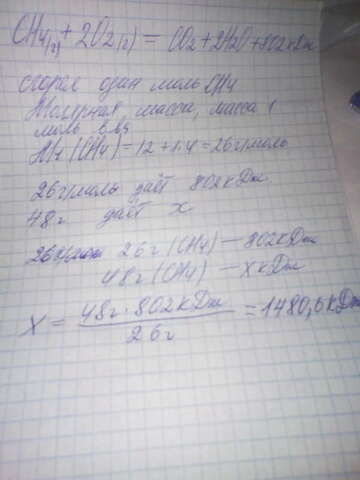 CH4(г) + 2O2(г) = CO2 + 2H2O + 802 кДж
сгорел один моль CH4
Молярная масса, масса 1
моль в-ва
M(CH4) = 12 + 1·4 = 26 г/моль
26 г/моль даёт 802 кДж
48 г даёт x
26 г (CH4) — 802 кДж
48 г (CH4) — x кДж
X = 48 г · 802 кДж / 26 г = 1480,6 кДж